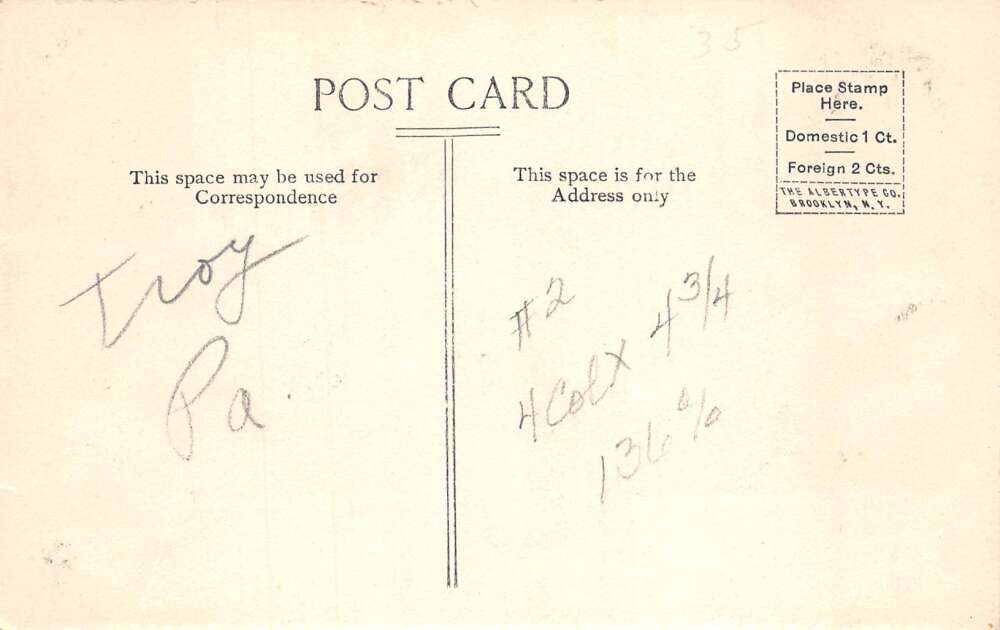 35
POST CARD
Place Stamp
Here.
Domestic 1 Ct.
Foreign 2 Cts.
THE ALBERTYPE CO.
BROOKLYN, N.Y.
This space may be used for
Correspondence
This space is for the
Address only
Troy
Pa.
#2
4 Col x 4 3/4
136%